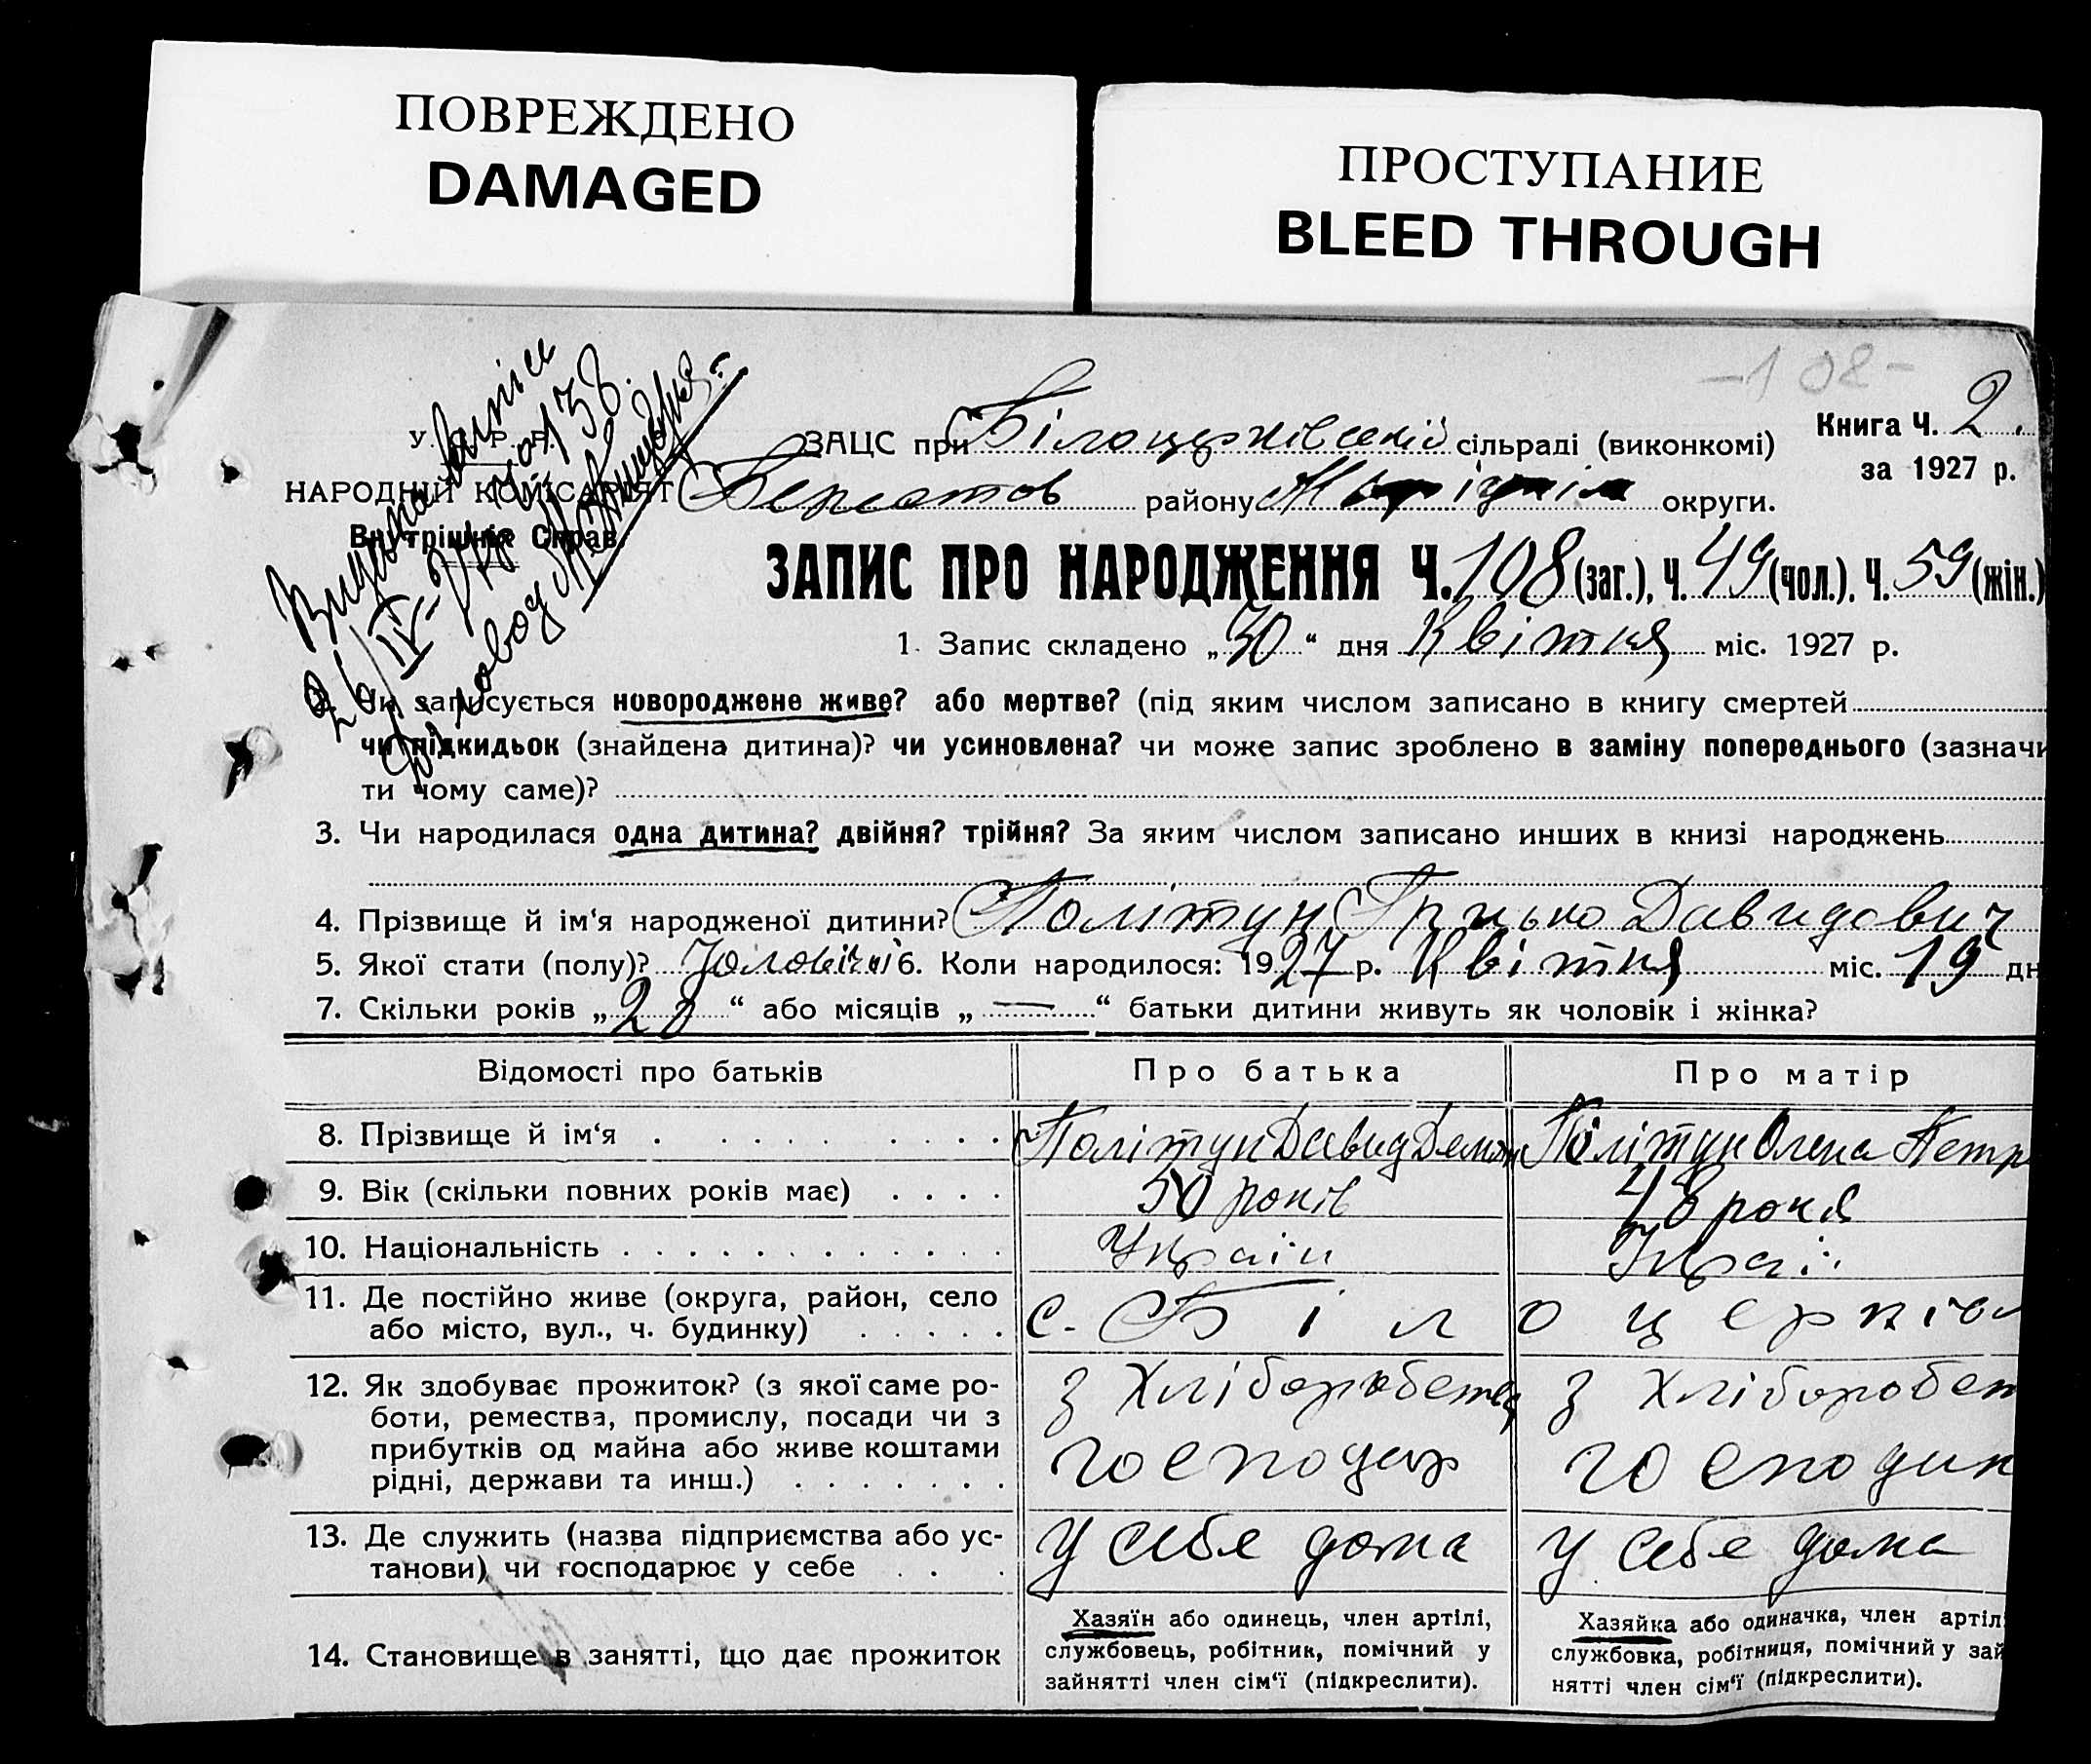 ПОВРЕЖДЕНО
DAMAGED
ПРОСТУПАНИЕ
BLEED THROUGH
-108-
Книга Ч. 2.
за 1927 р.
У. С. Р. Р.
НАРОДНІЙ КОМІСАРІЯТ
Внутрішніх Справ.
ЗАЦС при Білоцерківській сільраді (виконкомі)
району округи.
ЗАПИС ПРО НАРОДЖЕННЯ Ч. 108 (заг.), Ч. 49 (чол.), Ч. 59 (жін.)
1. Запис складено „30“ дня Квітня міс. 1927 р.
2. Чи записується новороджене живе? або мертве? (під яким числом записано в книгу смертей
чи підкидьок (знайдена дитина)? чи усиновлена? чи може запис зроблено в заміну попереднього (зазначи
ти чому саме)?
3. Чи народилася одна дитина? двійня? трійня? За яким числом записано инших в книзі народжень
4. Прізвище й ім‘я народженої дитини? Політун Грицько Давидович
5. Якої стати (полу)? Чоловічої 6. Коли народилося: 1927 р. Квітня міс. 19 дн
7. Скільки років „28“ або місяців „—“ батьки дитини живуть як чоловік і жінка?
Відомості про батьків
Про батька
Про матір
8. Прізвище й ім‘я
Політун Давид Демян
Політун Олена Петр
9. Вік (скільки повних років має)
50 років
48 років
10. Національність
Україн
Украї
11. Де постійно живе (округа, район, село
або місто, вул., ч. будинку)
с. Білоцерків
12. Як здобуває прожиток? (з якої саме ро-
боти, ремества, промислу, посади чи з
прибутків од майна або живе коштами
рідні, держави та инш.)
з Хліборобства
господар
з Хліборобст
господин
13. Де служить (назва підприємства або ус-
танови) чи господарює у себе
У себе дома
У себе дома
14. Становище в занятті, що дає прожиток
Хазяїн або одинець, член артілі,
службовець, робітник, помічний у
зайнятті член сім‘ї (підкреслити).
Хазяйка або одиначка, член артіл
службовка, робітниця, помічний у зай
нятті член сім‘ї (підкреслити).